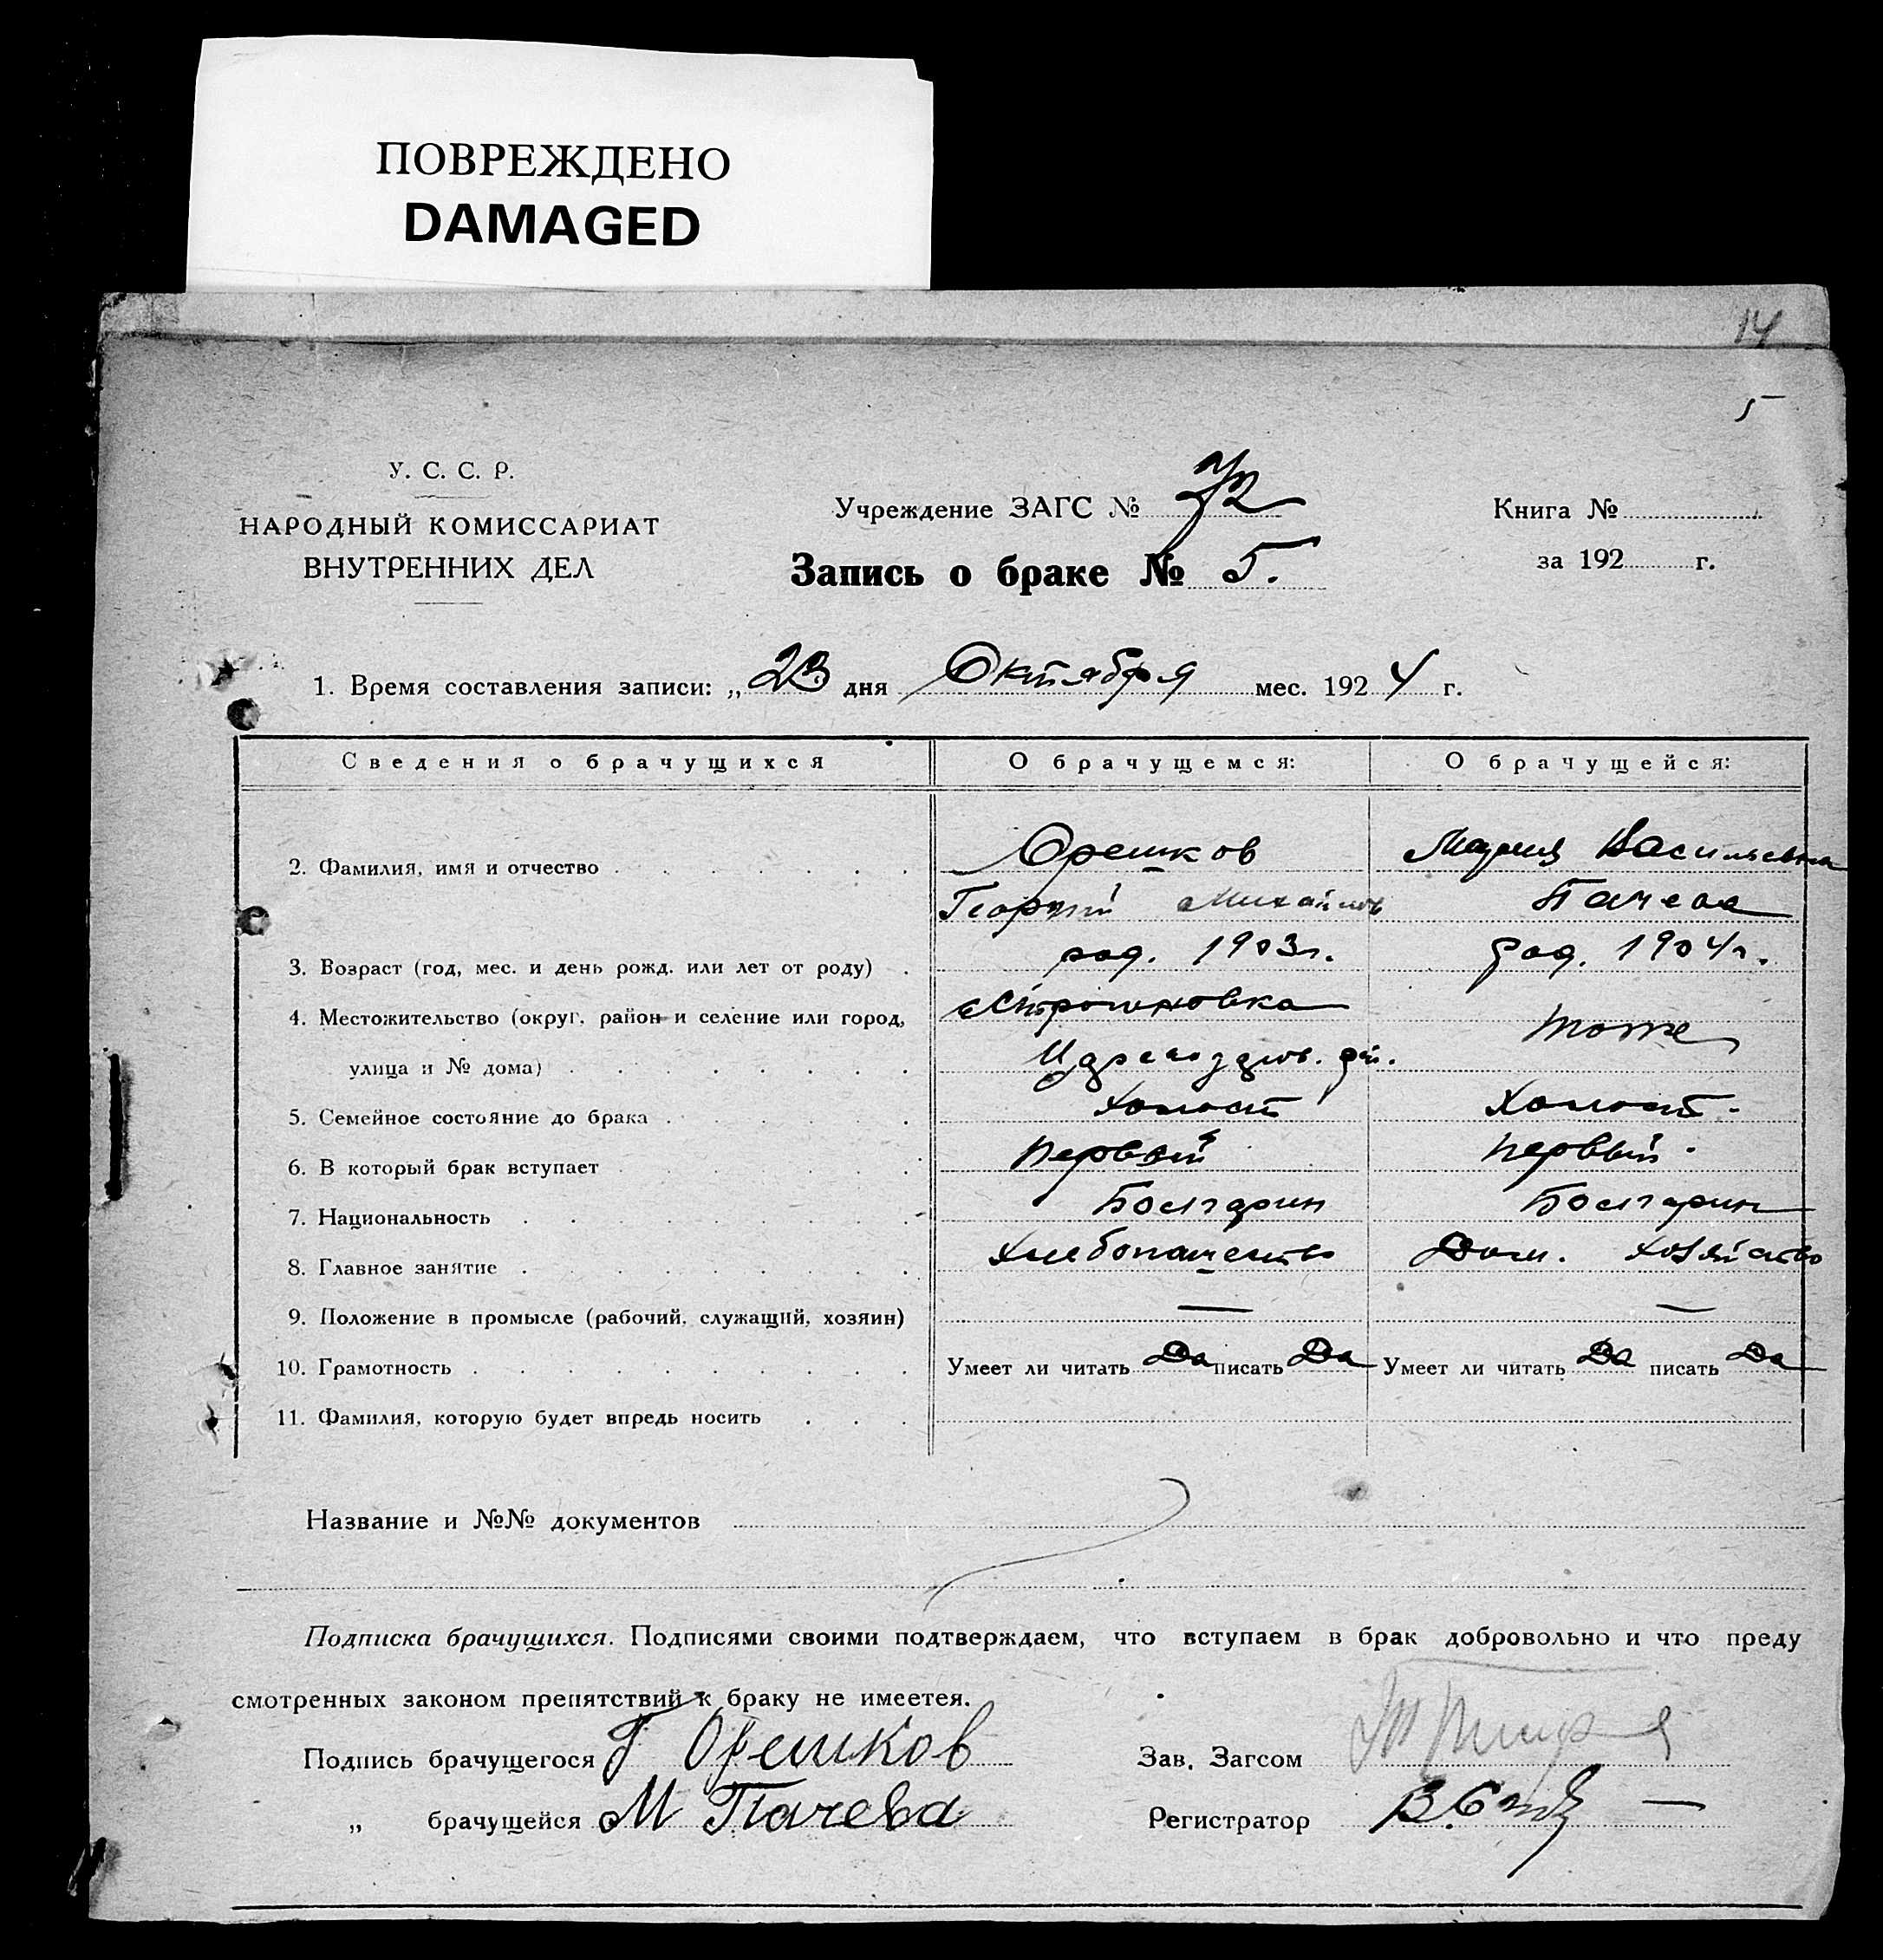 ПОВРЕЖДЕНО
DAMAGED
14
5
У. С. С. Р.
НАРОДНЫЙ КОМИССАРИАТ
ВНУТРЕННИХ ДЕЛ
Учреждение ЗАГС № 72
Книга №
Запись о браке № 5.
за 192 г.
1. Время составления записи: „ 23 дня Октября мес. 192 4 г.
Сведения о брачущихся О брачущемся: О брачущейся:
2. Фамилия, имя и отчество Орешков Мария Васильевна
Георгий Михайлов Пачева
3. Возраст (год, мес. и день рожд. или лет от роду) род. 1903 г. род. 1904 г.
4. Местожительство (округ, район и селение или город, Строгановка тоже
улица и № дома)
5. Семейное состояние до брака Холост Холост.
6. В который брак вступает первый первый.
7. Национальность Болгарин Болгарин
8. Главное занятие Хлебопашество Дом. хозяйство
9. Положение в промысле (рабочий, служащий, хозяин) — —
10. Грамотность Умеет ли читать Да писать Да Умеет ли читать Да писать Да
11. Фамилия, которую будет впредь носить
Название и №№ документов
Подписка брачущихся. Подписями своими подтверждаем, что вступаем в брак добровольно и что преду
смотренных законом препятствий к браку не имеетея.
Подпись брачущегося Г Орешков Зав. Загсом
„ брачущейся М Пачева Регистратор